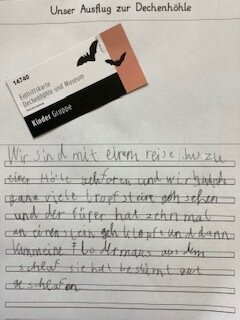 Unser Ausflug zur Dechenhöhle
14740
Eintrittskarte
Dechenhöhle und Museum
Kinder Gruppe
Wir sind mit einem reise bus zu
einer Höle gefaren und wir
ganz viele tropf steine geh sehen
und der fürer hat zehn mal
an einen stein geh klopft und dann
kam eine fledermaus aus dem
schlaf sie hat bestimt gut
geschlafen